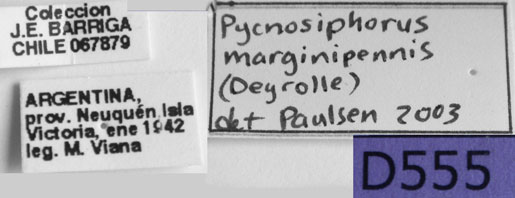 Coleccion
J.E. BARRIGA
CHILE 067879
ARGENTINA,
prov. Neuquén Isla
Victoria, ene 1942
leg. M. Viana
Pycnosiphorus
marginipennis
(Deyrolle)
det Paulsen 2003
D555